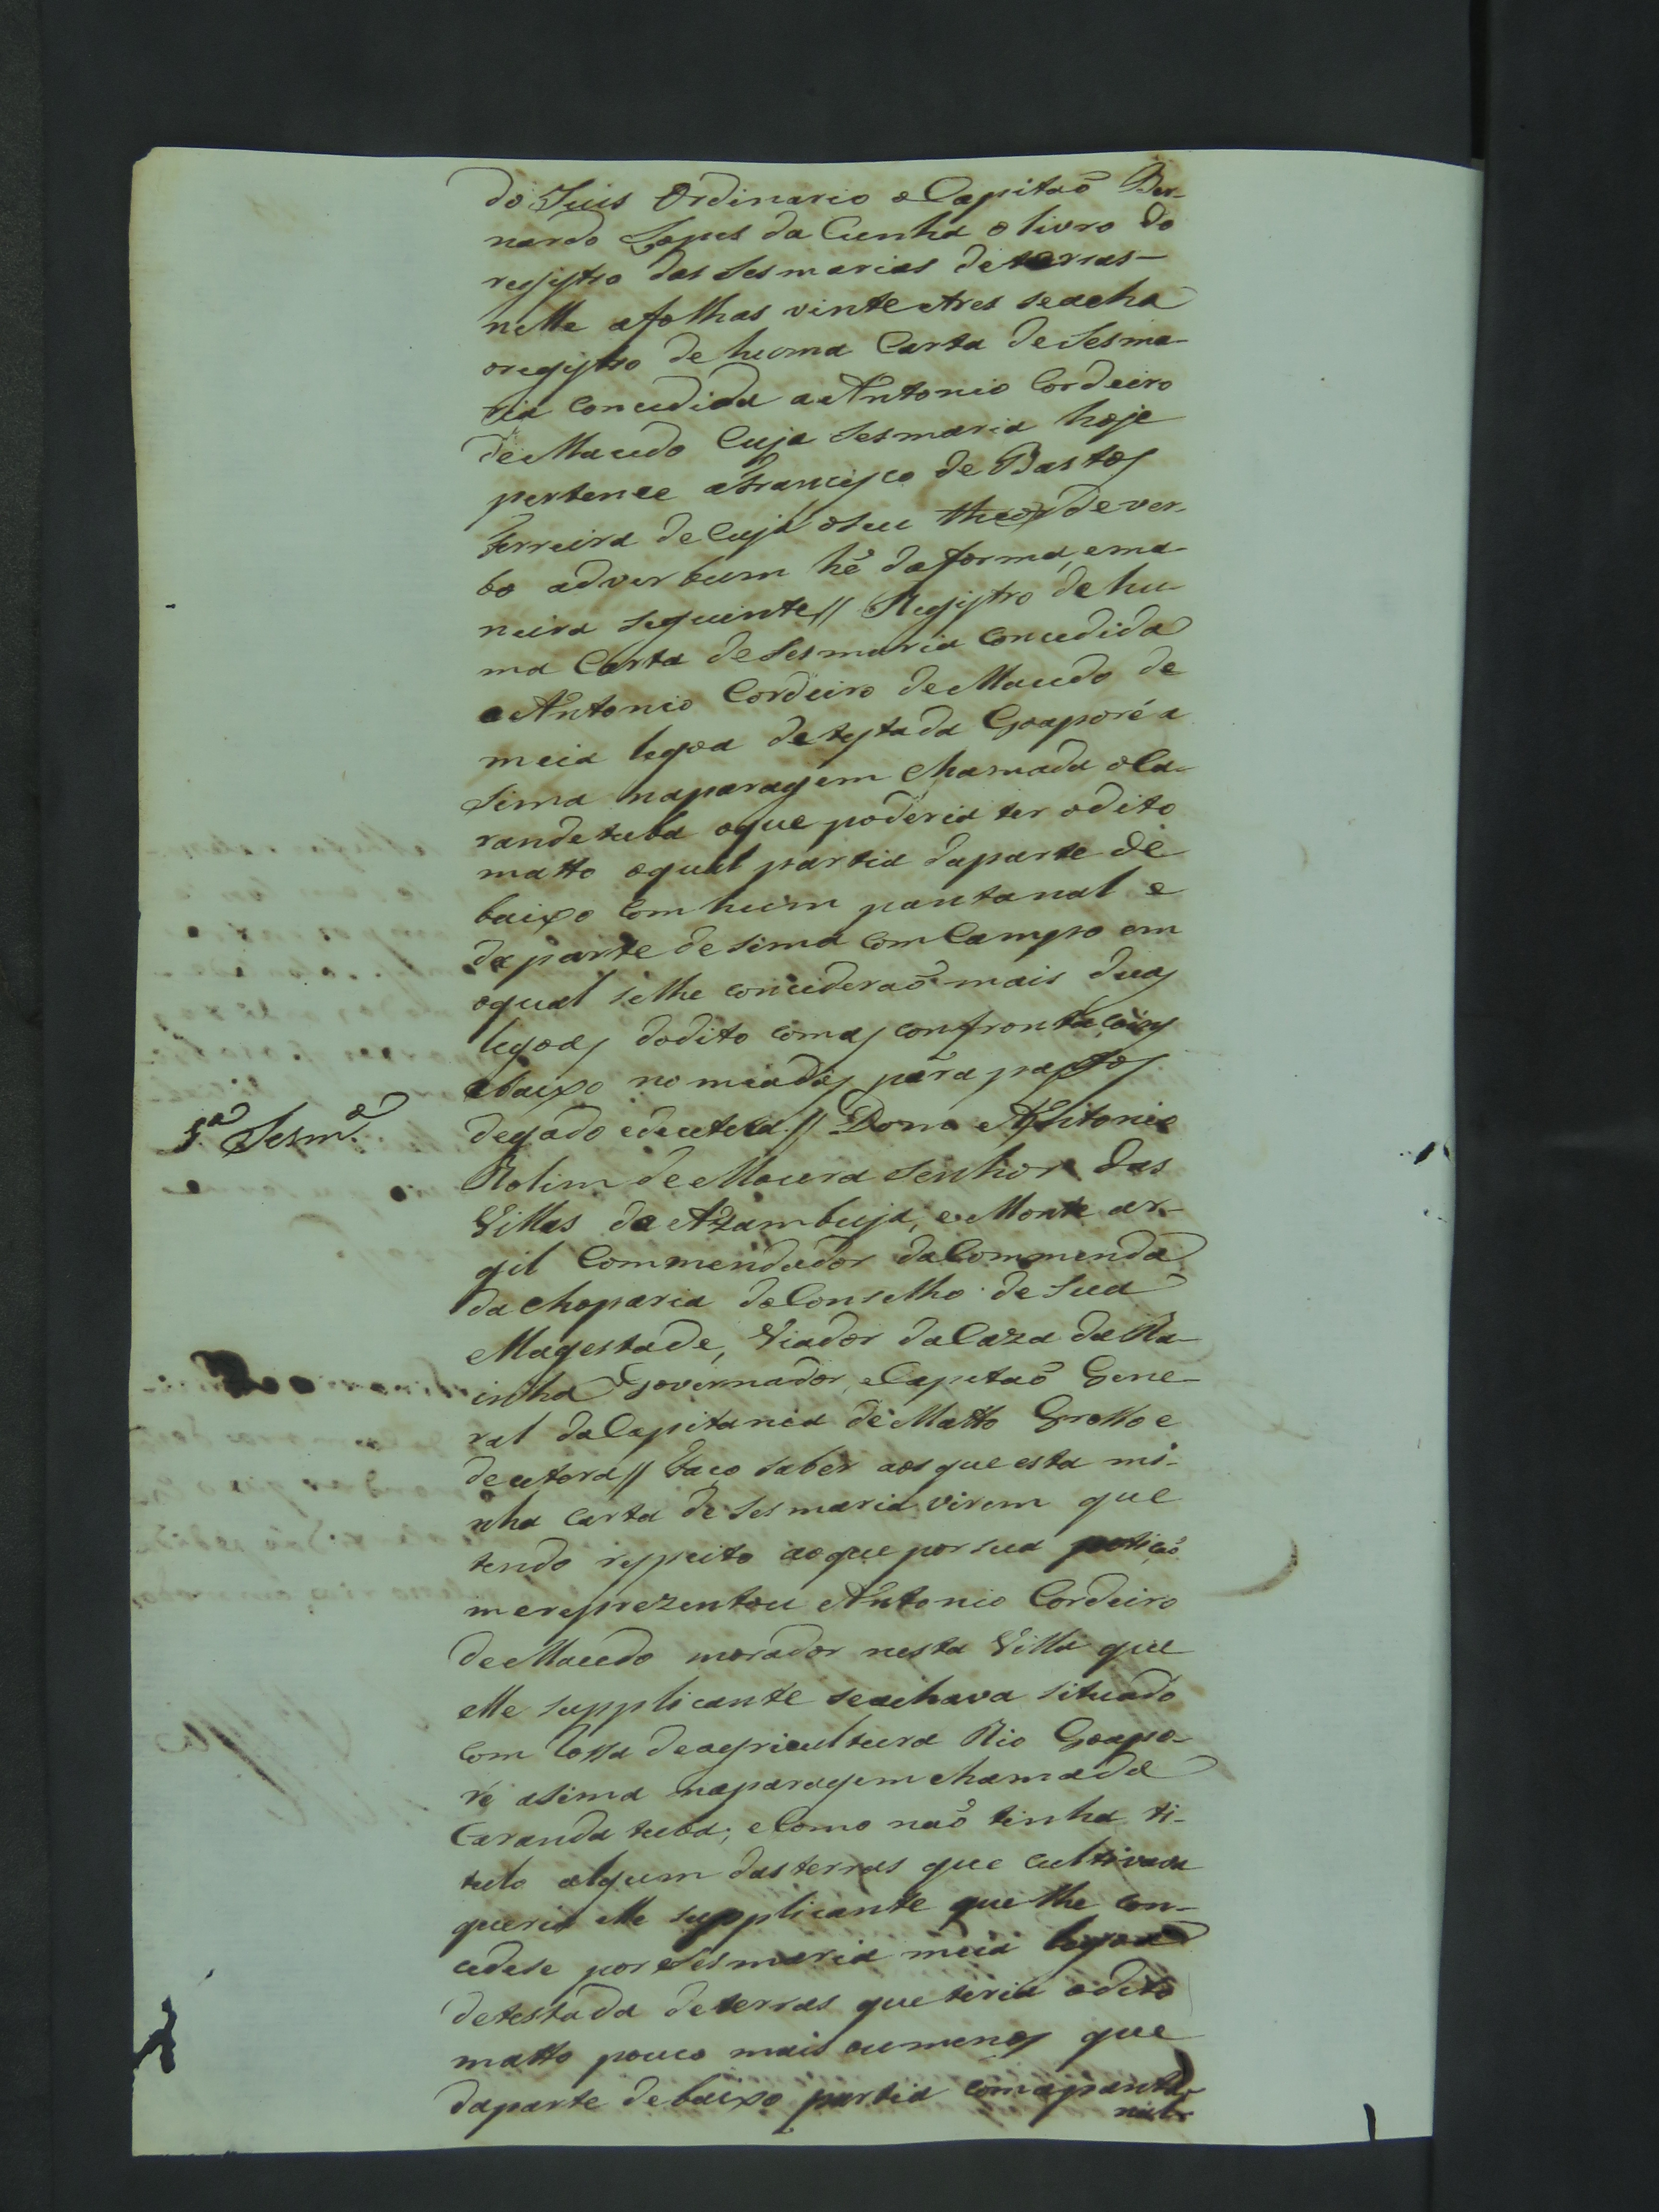 do Juis Ordinario o Capitaõ Ber-
nardo Lopes da Cunha o livro do
registro das Sesmarias de terras-
nelle afolhas vinte etres seacha
oregistro de huma Carta de Sesma-
ria Concedida a Antonio Cordeiro
de Macedo Cuja Sesmaria hoje
pertence aFrancisco de Bastos
Ferreira de Cuja oseu theor de ver-
bo adverbum hé daforma, ema-
neira seguinte // Registro de hu-
ma Carta de Sesmaria Concedida
a Antonio Cordeiro de Macedo de
meia legoa detestada Goaporé a
sima naparagem chamada oCa-
randetuba oque poderia ter odito
matto oqual partia daparte de
baixo Com hum pantanal e
da parte de sima Com Campo em
oqual selhe concederaõ mais duas
legoas dodito comas confrontacoins
abaixo nomiadas para pastos
degado edecetera // Dom Antonio
1.ª Sesm.ª
Rolim de Moura Senhor das
Villas da Azambuja, e Monte ar-
gil Commendador daCommenda
da choparia doConselho de Sua
Magestade, Viador daCaza da Ra-
inha Governador, eCapitaõ Gene-
ral daCapitania de Matto Grosso e
decetera // Faço saber aos que esta mi-
nha Carta de Sesmaria virem que
tendo respeito aoque por sua petiçaõ
mereprezentou Antonio Cordeiro
de Macedo morador nesta Villa que
elle supplicante seachava situado
Com Rossa deagricultura Rio Goapo-
ré asima naparagem chamada
Caranda tuba; eComo naõ tinha ti-
tulo algum dasterras que cultivava
queria elle supplicante que lhe con-
cedese por Sesmaria meia legoa
detestada deterras que teria odito
matto pouco mais oumenos que
daparte debaixo partia comapanta-
nal